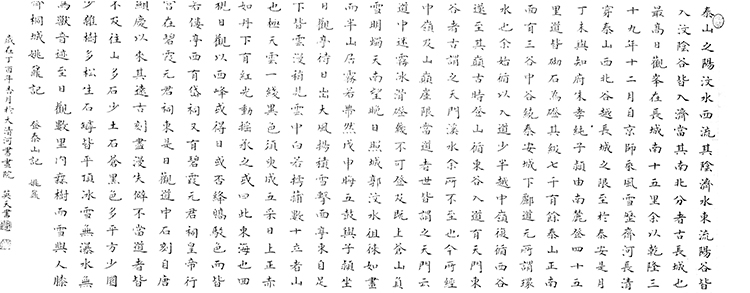 泰山之陽汶水西流其陰濟水東流陽谷皆
入汶陰谷皆入濟當其南北分者古長城也
最高日觀峯在長城南十五里余以乾隆三
十九年十二月自京師乘風雪歷齊河長清
穿泰山西北谷越長城之限至於泰安是月
丁未與知府朱孝純子潁由南麓登四十五
里道皆砌石為磴其級七千有餘泰山正南
面有三谷中谷繞泰安城下酈道元所謂環
水也余始循以入道少半越中嶺復循西谷
遂至其巔古時登山循東谷入道有天門東
谷者古謂之天門溪水余所不至也今所經
中嶺及山巔崖限當道者世皆謂之天門云
道中迷霧冰滑磴幾不可登及既上蒼山負
雪明燭天南望晚日照城郭汶水徂徠如畫
而半山居霧若帶然戊申晦五鼓與子潁坐
日觀亭待日出大風揚積雪擊面亭東自足
下皆雲漫稍見雲中白若樗蒱數十立者山
也極天雲一線異色須臾成五采日上正赤
如丹下有紅光動搖承之或曰此東海也回
視日觀以西峰或得日或否絳皜駁色而皆
若僂亭西有岱祠又有碧霞元君祠皇帝行
宮在碧霞元君祠東是日觀道中石刻自唐
顯慶以來其遠古刻盡漫失僻不當道者皆
不及往山多石少土石蒼黑色多平方少圜
少雜樹多松生石罅皆平頂冰雪無瀑水無
鳥獸音迹至日觀數里內無樹而雪與人膝
齊桐城姚鼐記 登泰山記 姚鼐
歲在丁酉年月於大清河書畫院 英夫書